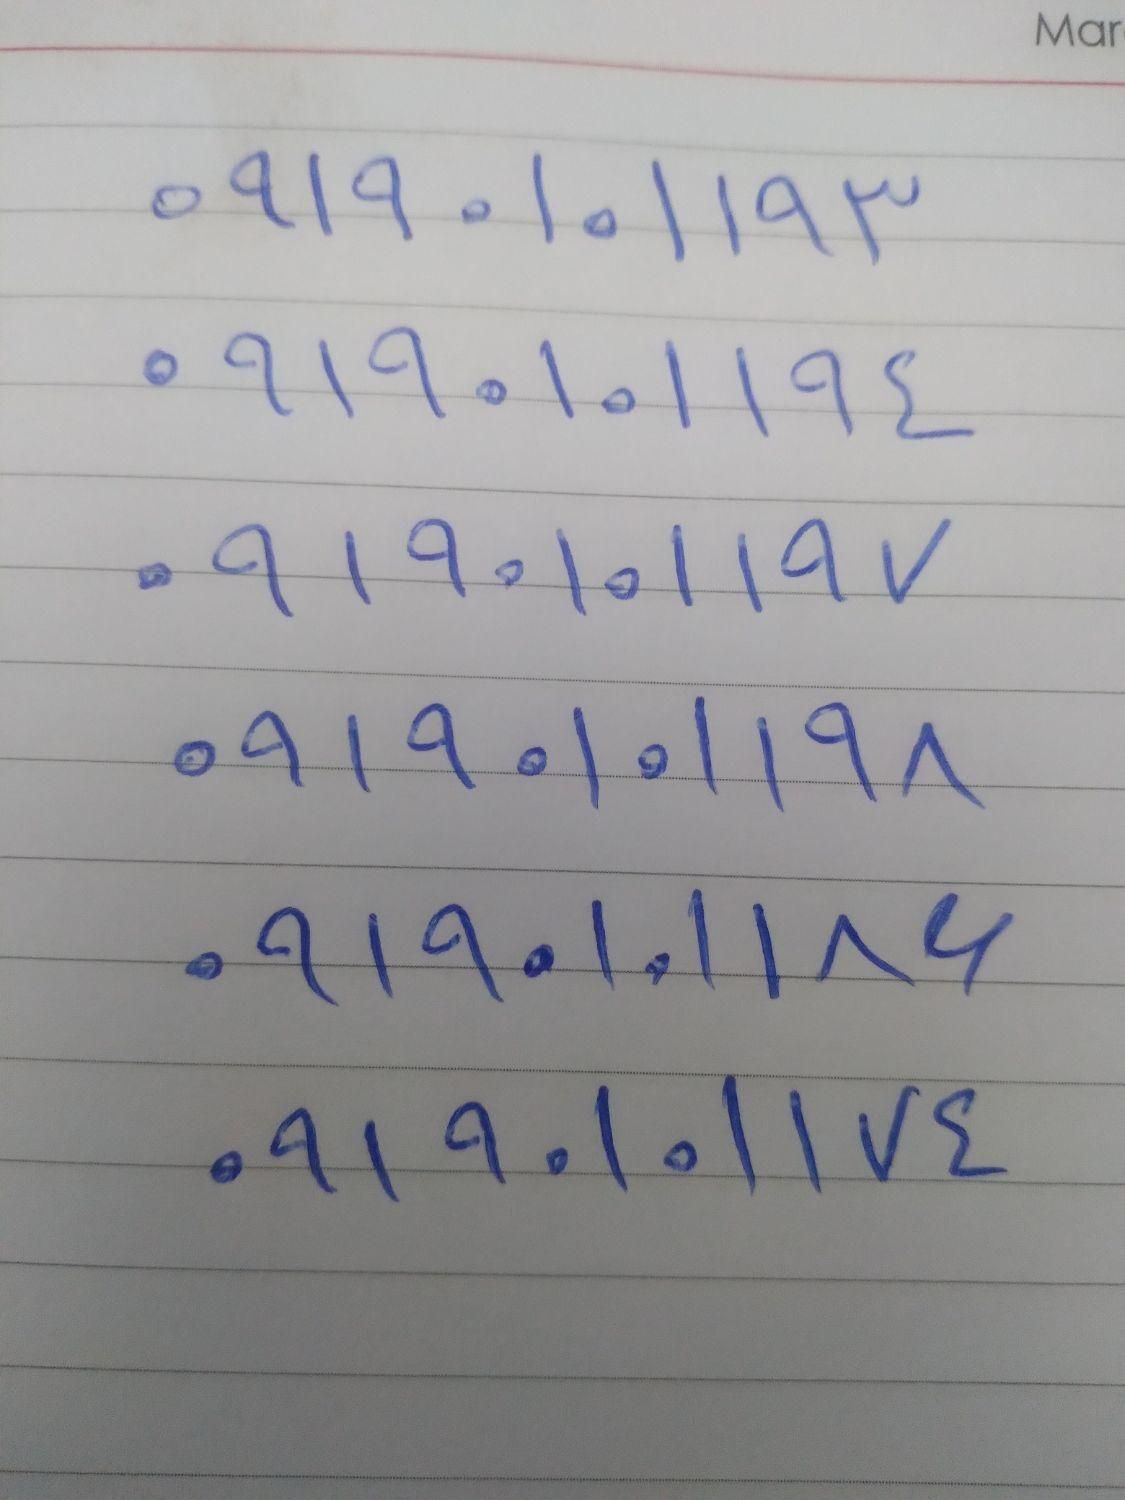 Mar
۰۹۱۹۰۱۰۱۱۹۳
۰۹۱۹۰۱۰۱۱۹٤
۰۹۱۹۰۱۰۱۱۹۷
۰۹۱۹۰۱۰۱۱۹۸
۰۹۱۹۰۱۰۱۱۸۶
۰۹۱۹۰۱۰۱۱۷٤